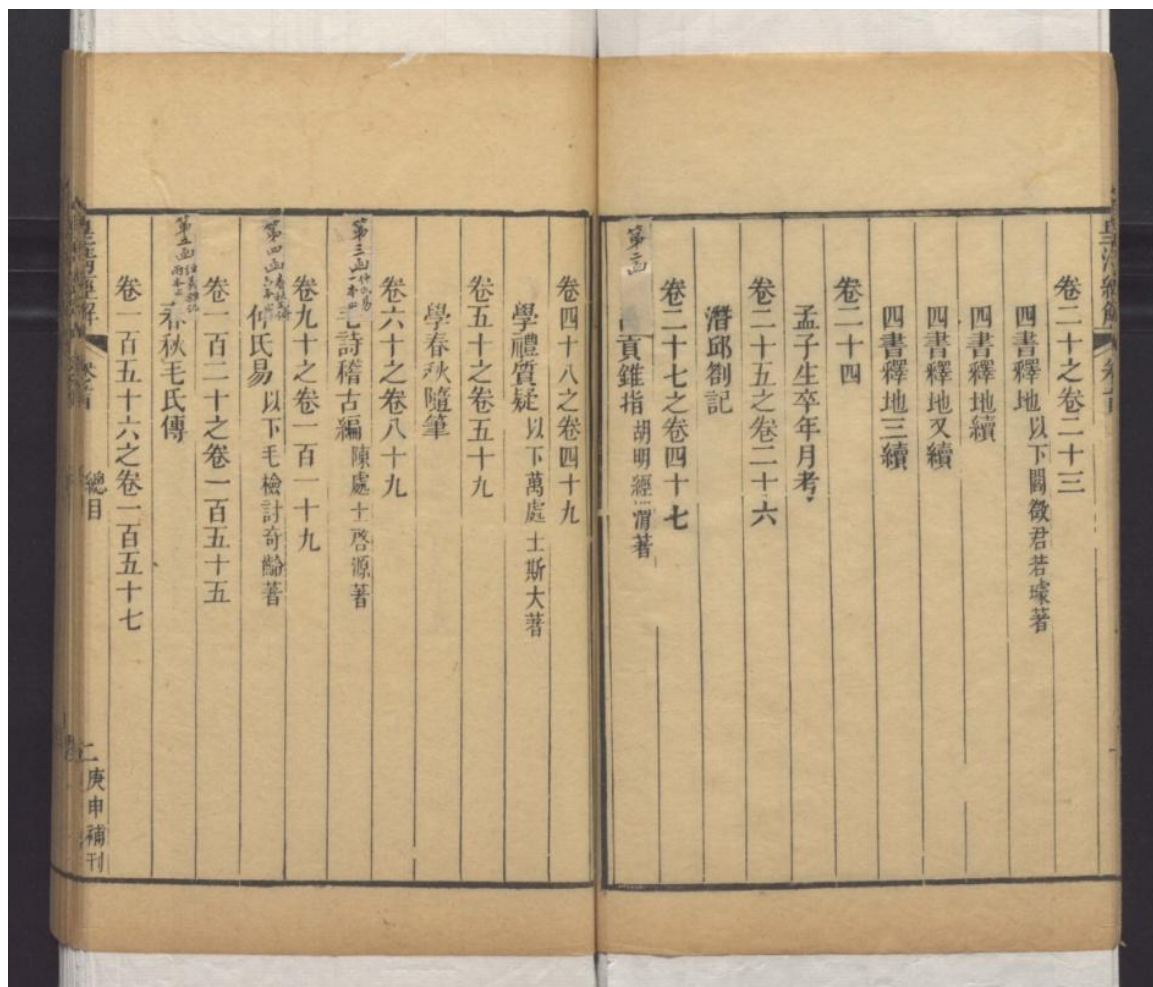 皇清經解
卷二十之卷二十三
四書釋地以下閻徵君若璩著
四書釋地續
四書釋地又續
四書釋地三續
卷二十四
孟子生卒年月考
卷二十五之卷二十六
潛邱劄記
卷二十七之卷四十七
第二函
貢錐指胡明經渭著
卷四十八之卷四十九
學禮質疑以下萬處士斯大著
卷五十之卷五十九
學春秋隨筆
卷六十之卷八十九
第三函
毛詩稽古編陳處士啓源著
卷九十之卷一百一十九
第四函
仲氏易以下毛檢討奇齡著
卷一百二十之卷一百五十五
第五函
春秋毛氏傳
卷一百五十六之卷一百五十七
皇清經解
總目
二
庚申補刊